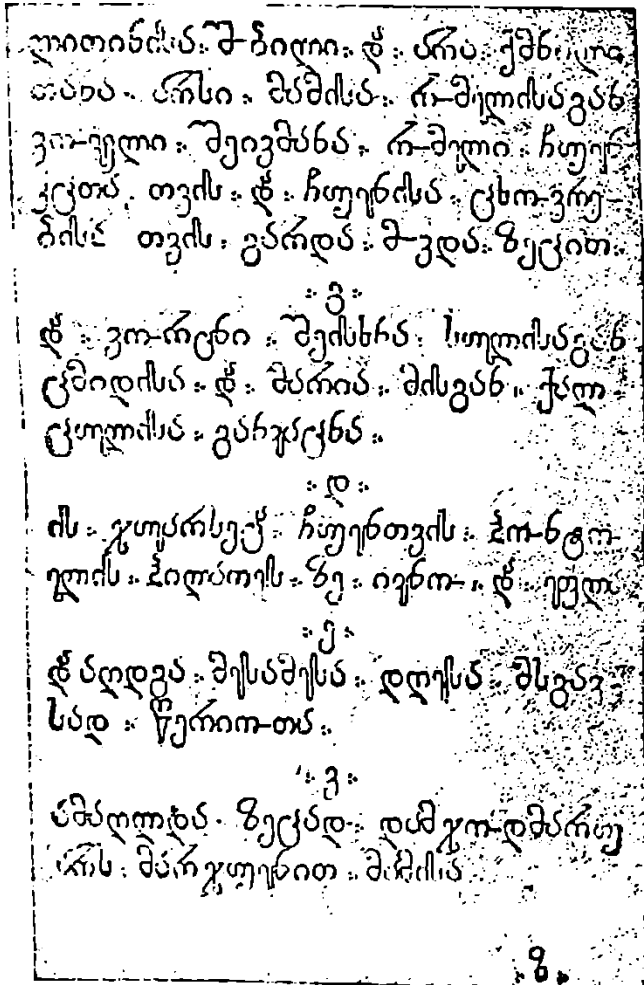 ლითინისა : შბილი : დ : არა : ქმნილი
თანა : არსი : მამისა : რ~მელისაგან
ყო~ველი : შეიქმანა : რ~მელი : ჩუენ
კცთა თვის : დ : ჩუენისა : ცხო~ვრე-
ბისა თვის : გარდა : მ~ვდა : ზეცით :
: გ :
დ : ჴო~რცნი : შეისხნა : სულისაგან
წმიდისა : დ : მარია : მისგან : ქალ
წულისა : განკაცნა :
: დ :
ის : ჯუარსეც : ჩუენთვის : პო~ნტო
ელის : პილატეს : ზე : ივნო~ : დ : ეფლა
: ე :
დ აღდგა : მესამესა : დღესა : მსგავ
სად : წერიო~თა :
: ვ :
ამაღლდა : ზეცად : დამჯო~დმარე
არს : მარჯუენით : მამისა
: ზ :